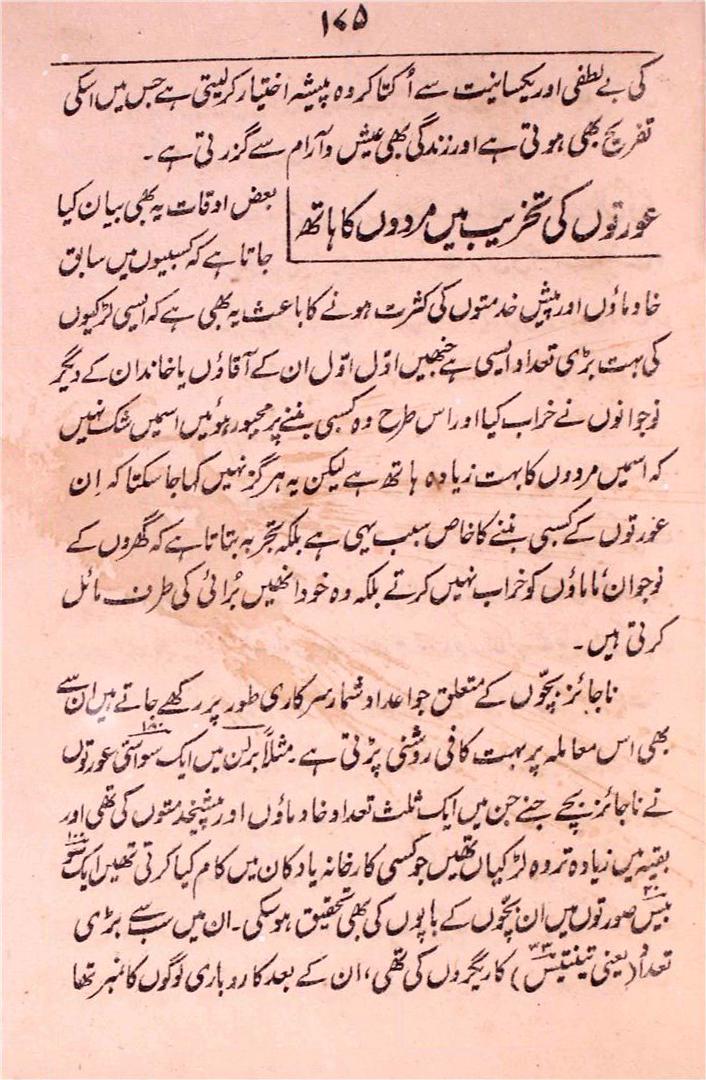 ۱۷۵
کی بے لطفی اور یکسانیت سے اُکتا کر وہ پیشہ اختیار کر لیتی ہے جس میں اسکی
تفریح بھی ہوتی ہے اور زندگی بھی عیش و آرام سے گزرتی ہے۔
عورتوں کی تخریب میں مردوں کا ہاتھ
بعض اوقات یہ بھی بیان کیا
جاتا ہے کہ کسبیوں میں سابق
خادماؤں اور پیش خدمتوں کی کثرت ہونے کا باعث یہ بھی ہے کہ ایسی لڑکیوں
کی بہت بڑی تعداد ایسی ہے جنھیں اوّل اوّل ان کے آقاؤں یا خاندان کے دیگر
نوجوانوں نے خراب کیا اور اس طرح وہ کسبی بننے پر مجبور ہوئیں اسمیں شک نہیں
کہ اسمیں مردوں کا بہت زیادہ ہاتھ ہے لیکن یہ ہرگز نہیں کہا جا سکتا کہ اِن
عورتوں کے کسبی بننے کا خاص سبب یہی ہے بلکہ تجربہ بتاتا ہے کہ گھروں کے
نوجوان ماماؤں کو خراب نہیں کرتے بلکہ وہ خود انھیں بُرائی کی طرف مائل
کرتی ہیں۔
ناجائز بچّوں کے متعلق جو اعداد و شمار سرکاری طور پر رکھے جاتے ہیں ان سے
بھی اس معاملہ پر بہت کافی روشنی پڑتی ہے۔ مثلاً برلن میں ایک سو اسّی ۱۸۰ عورتوں
نے ناجائز بچے جنے جن میں ایک ثلث تعداد خادماؤں اور پیشخدمتوں کی تھی اور
بقیہ میں زیادہ تر وہ لڑکیاں تھیں جو کسی کارخانہ یا دکان میں کام کیا کرتی تھیں ایک سو ۱۰۰
بیس ۲۰ صورتوں میں ان بچّوں کے باپوں کی بھی تحقیق ہو سکی۔ ان میں سب سے بڑی
تعداد (یعنی تینتیس ۳۳) کاریگروں کی تھی، ان کے بعد کاروباری لوگوں کا نمبر تھا